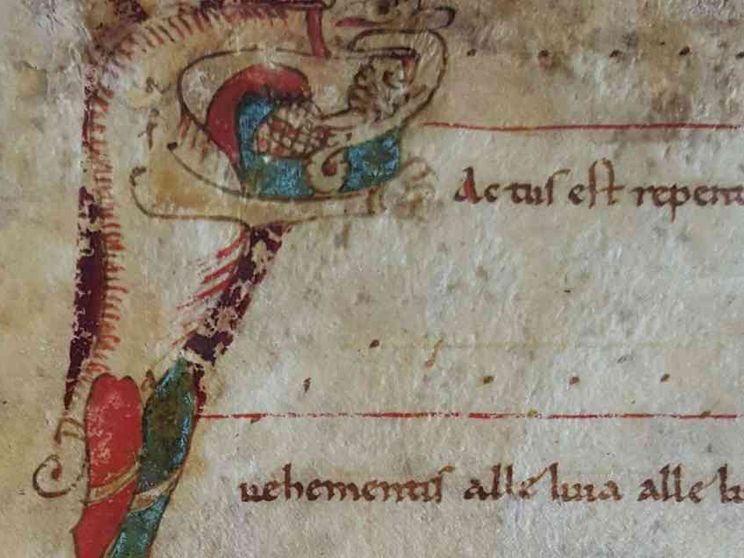 FActus est repent
uehementis alle luia alle l